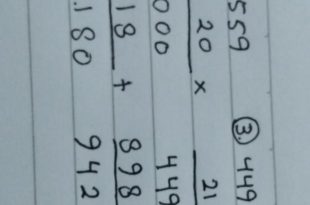 559 3. 449
20 × 21
000 449
18 + 898
.180 942